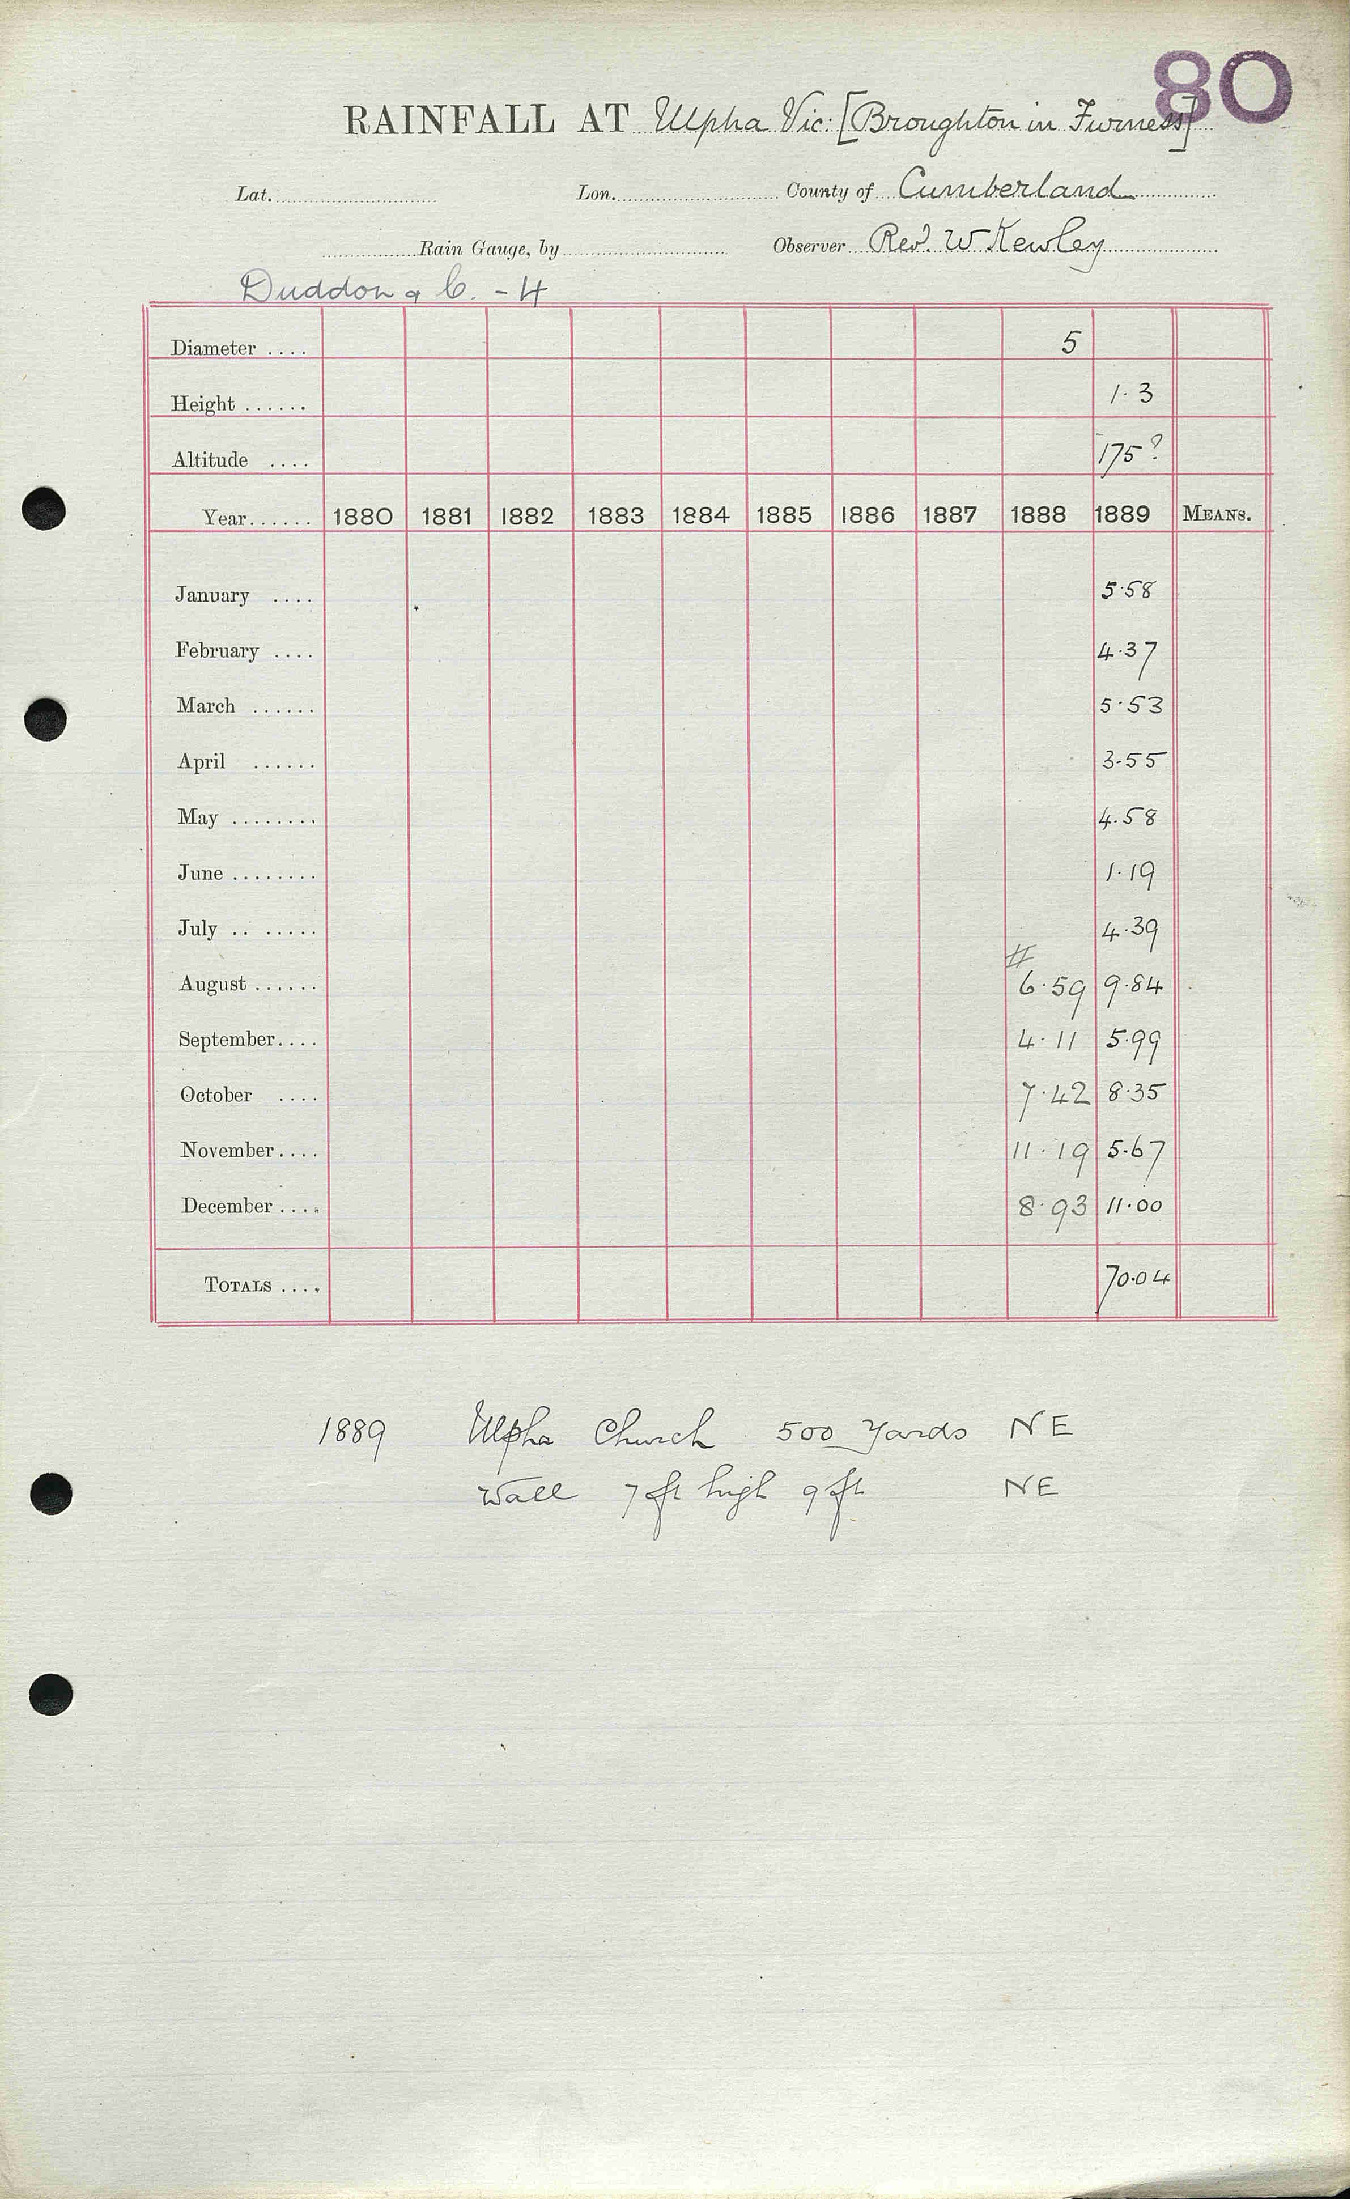 80
RAINFALL AT Ulpha Vic: [Broughton in Furness]
Lat. Lon. County of Cumberland
Rain Gauge, by Observer Revd. W Kewley
Duddon & C. - 4
Diameter .... 5
Height ...... 1.3
Altitude .... 175?
Year...... 1880 1881 1882 1883 1884 1885 1886 1887 1888 1889 MEANS.
January .... 5.58
February .... 4.37
March ...... 5.53
April ...... 3.55
May ........ 4.58
June ........ 1.19
July .. ..... 4.39
#
August ...... 6.59 9.84
September.... 4.11 5.99
October .... 7.42 8.35
November.... 11.19 5.67
December .... 8.93 11.00
TOTALS .... 70.04
1889 Ulpha Church 500 Yards NE
Wall 7 ft high 9 ft NE